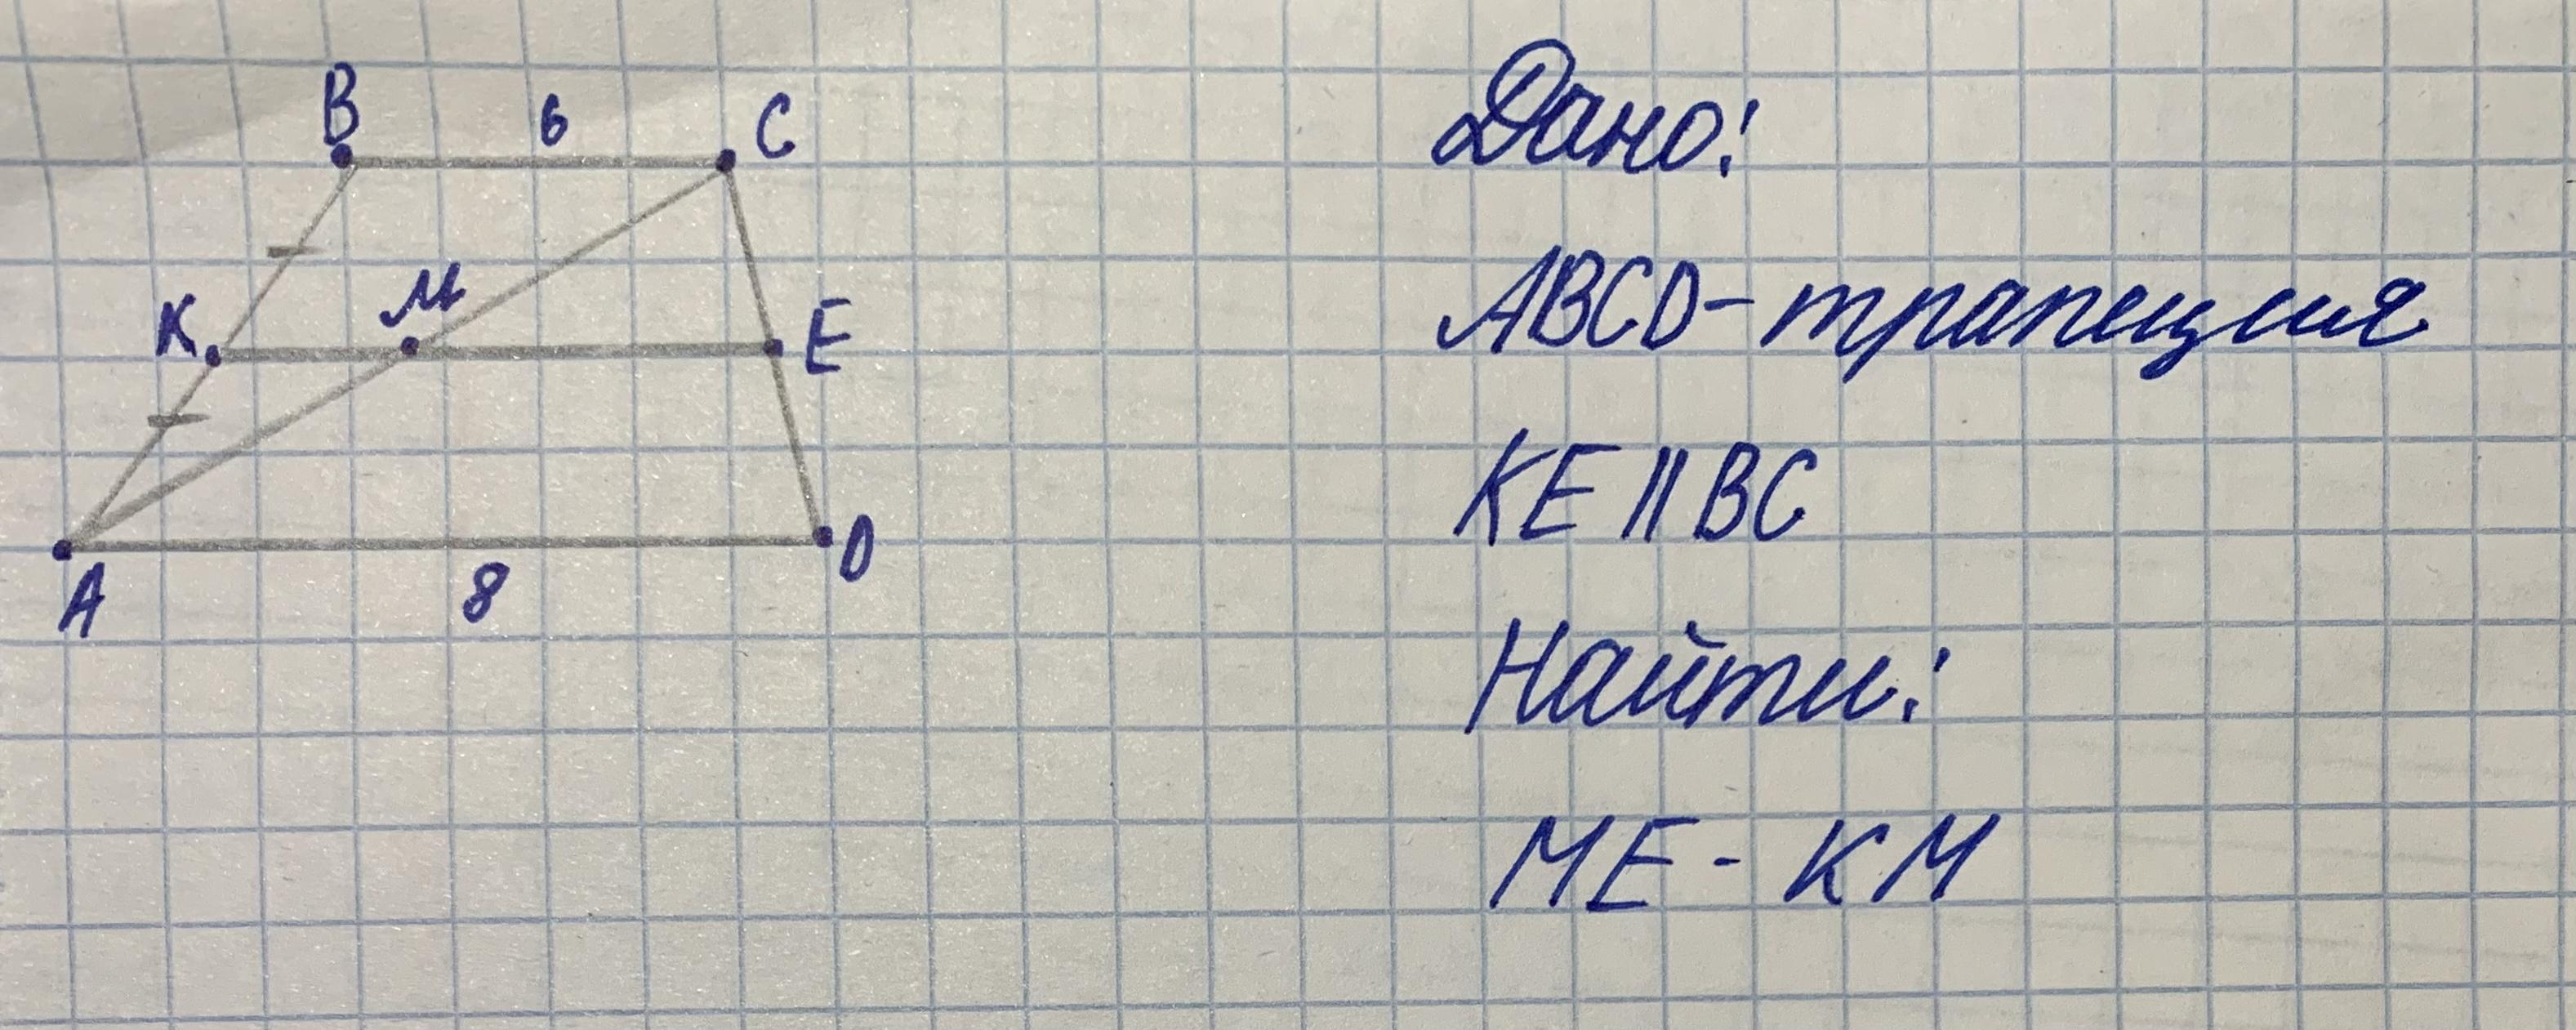 B 6 C
K M E
A 8 D
Дано:
ABCD-трапеция
KE || BC
Найти:
ME - KM